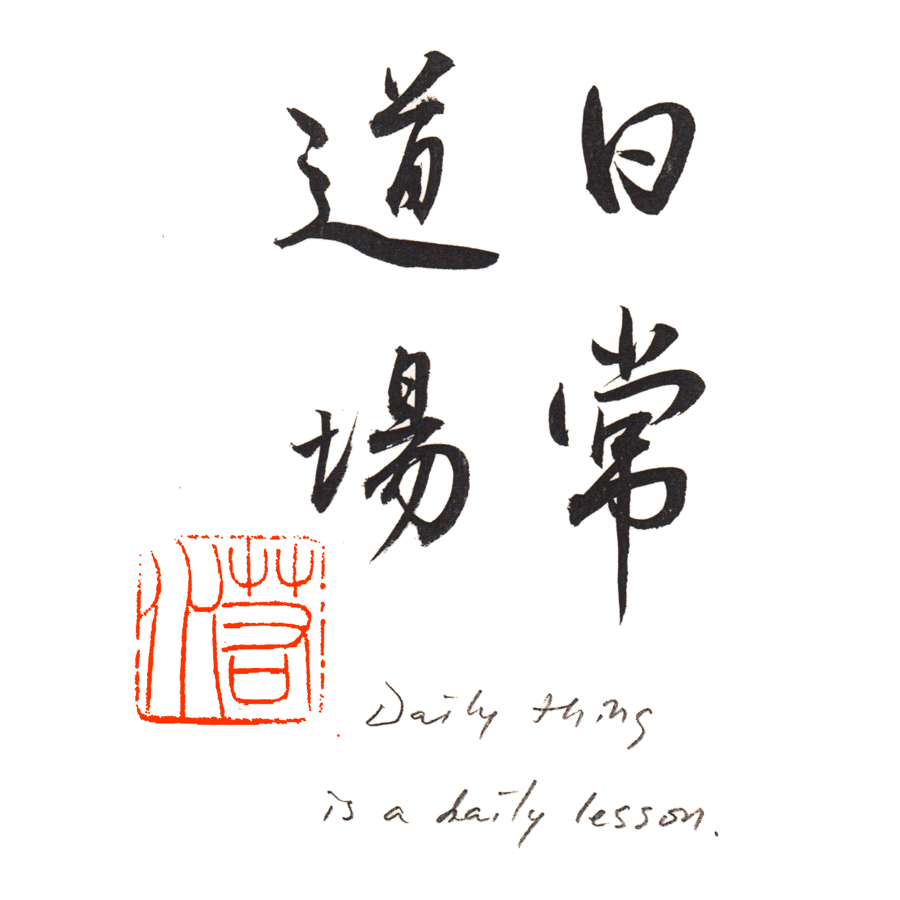 日常
道場
Daily thing
is a daily lesson.